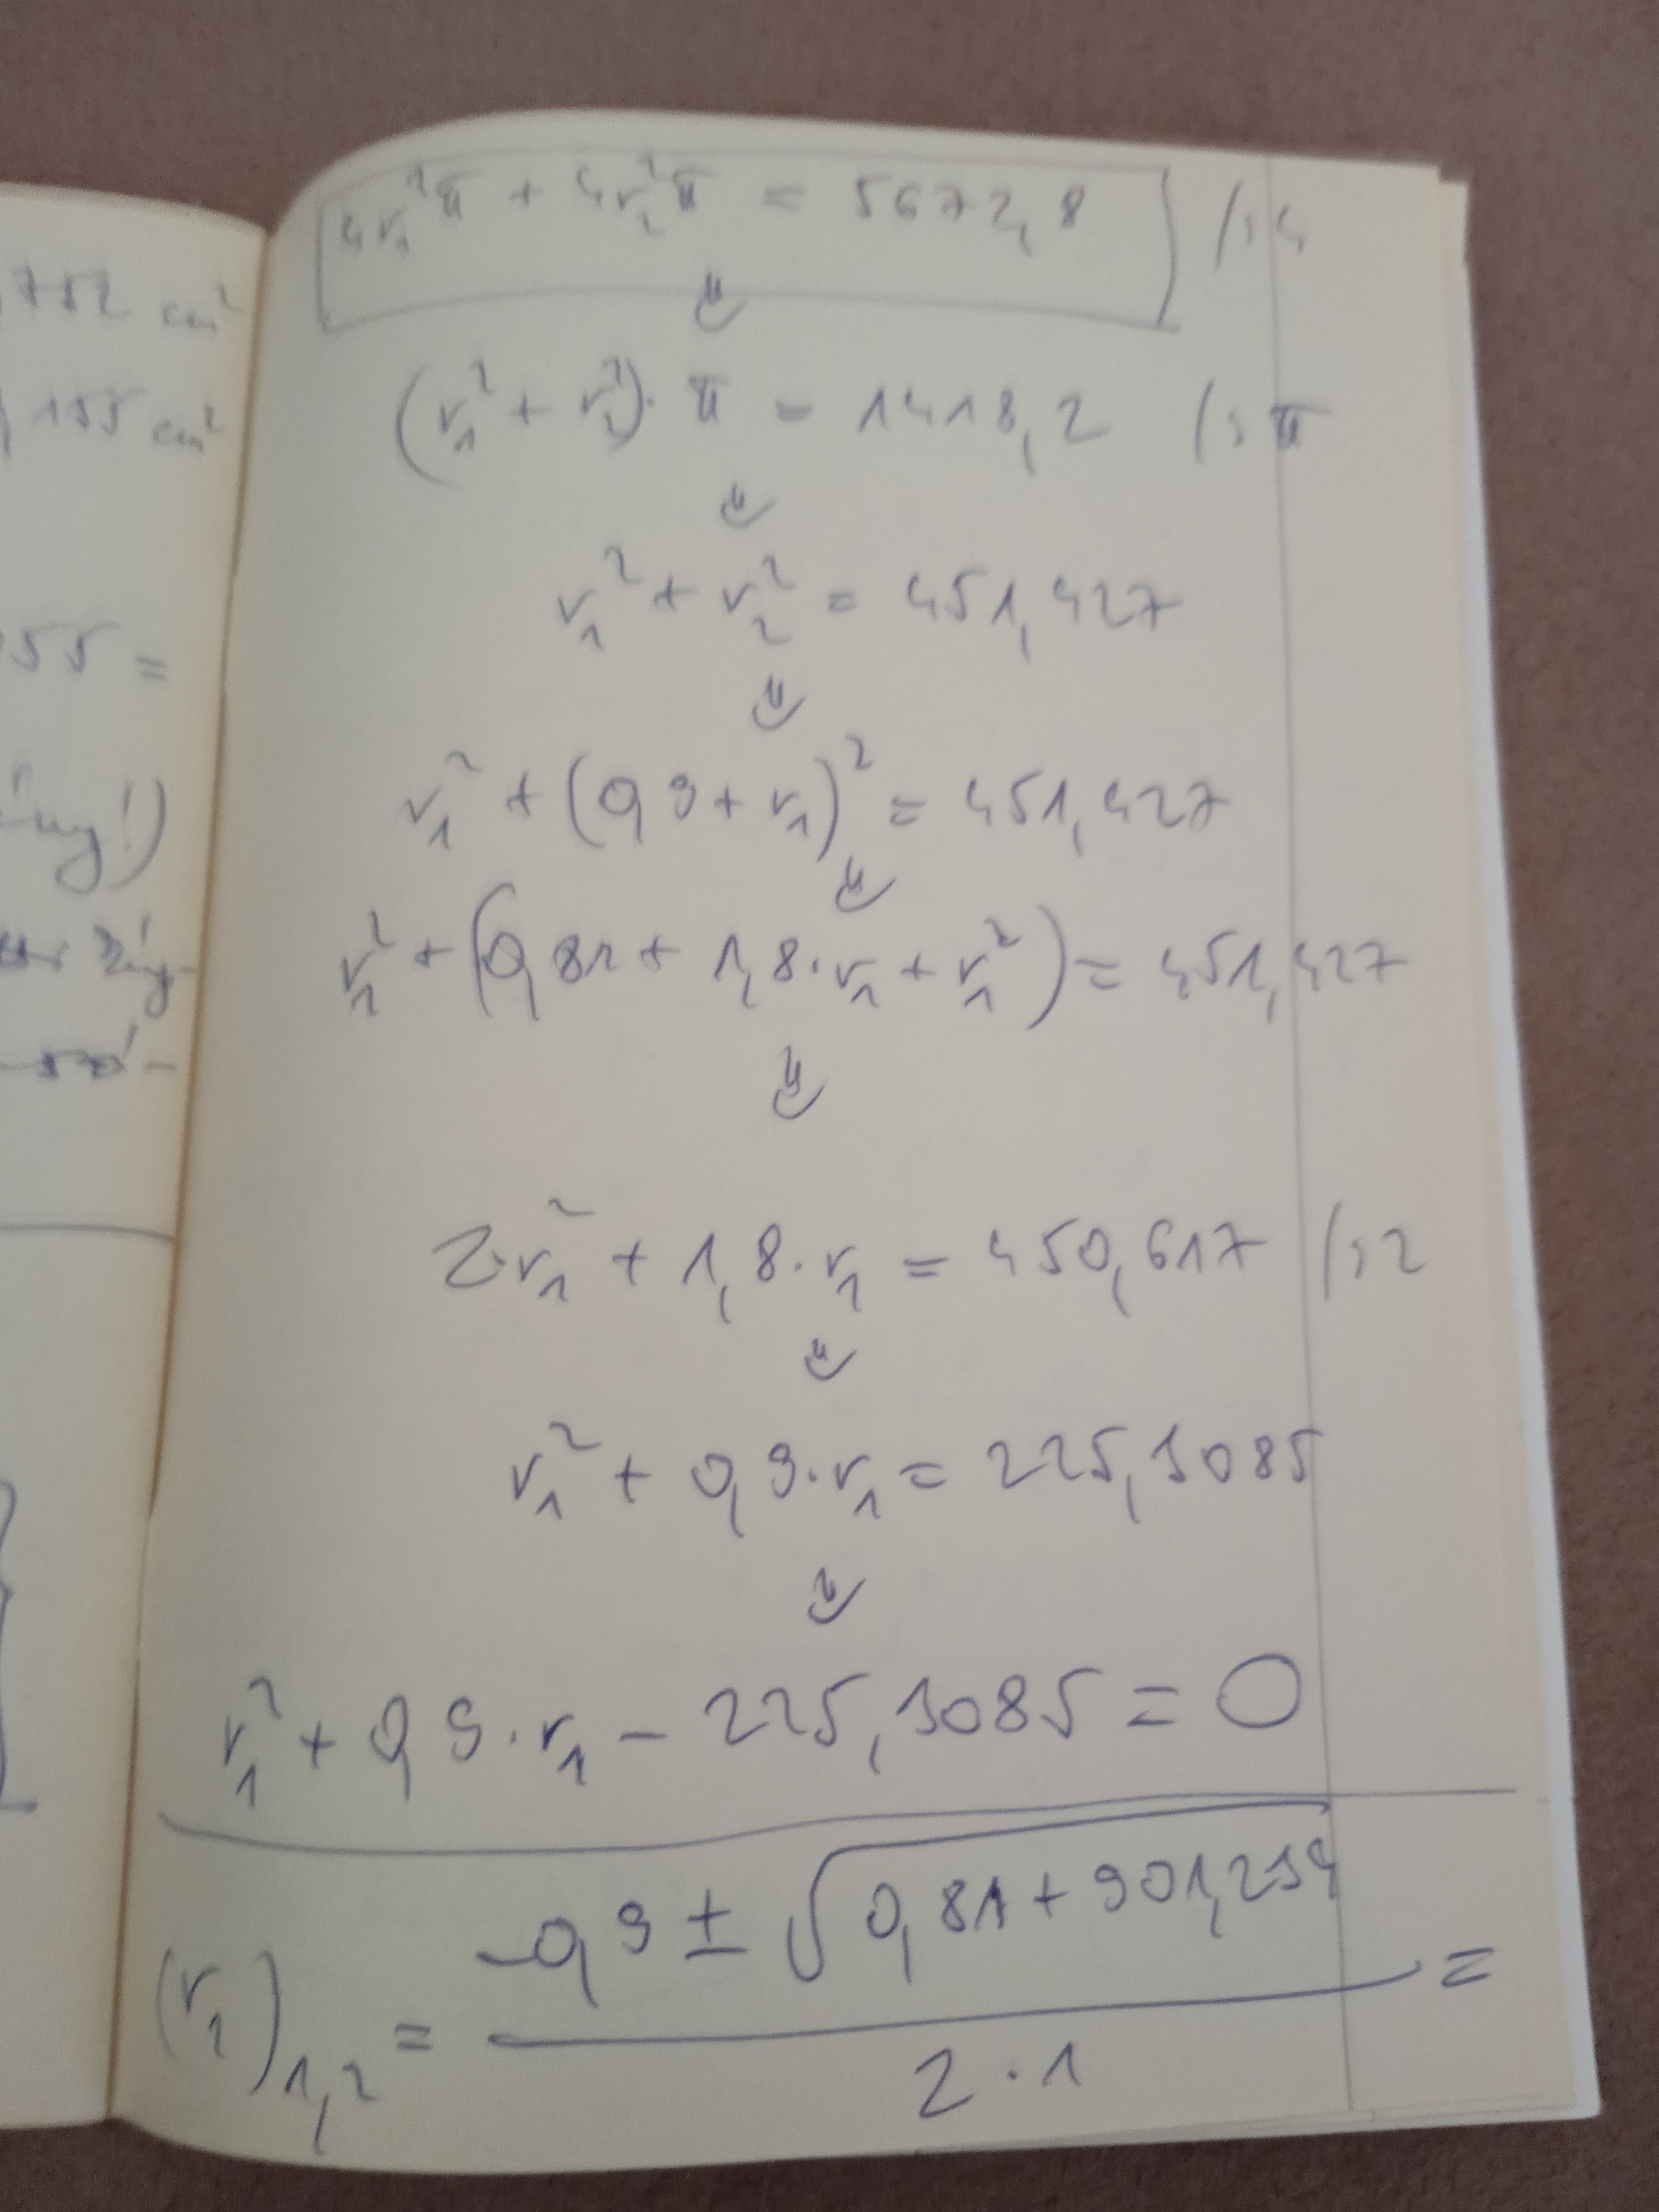 752 cm²
155 cm²
55 =
4r₁²π + 4r₂²π = 5672,8 /:4
⇓
(r₁² + r₂²)· π = 1418,2 /:π
⇓
r₁² + r₂² = 451,427
⇓
r₁² + (0,9 + r₁)² = 451,427
⇓
r₁² + (0,81 + 1,8·r₁ + r₁²) = 451,427
⇓
2·r₁² + 1,8·r₁ = 450,617 /:2
⇓
r₁² + 0,9·r₁ = 225,3085
⇓
r₁² + 0,9·r₁ − 225,3085 = 0
(r₁)₁,₂ = (−0,9 ± √(0,81 + 901,234)) / (2·1) =